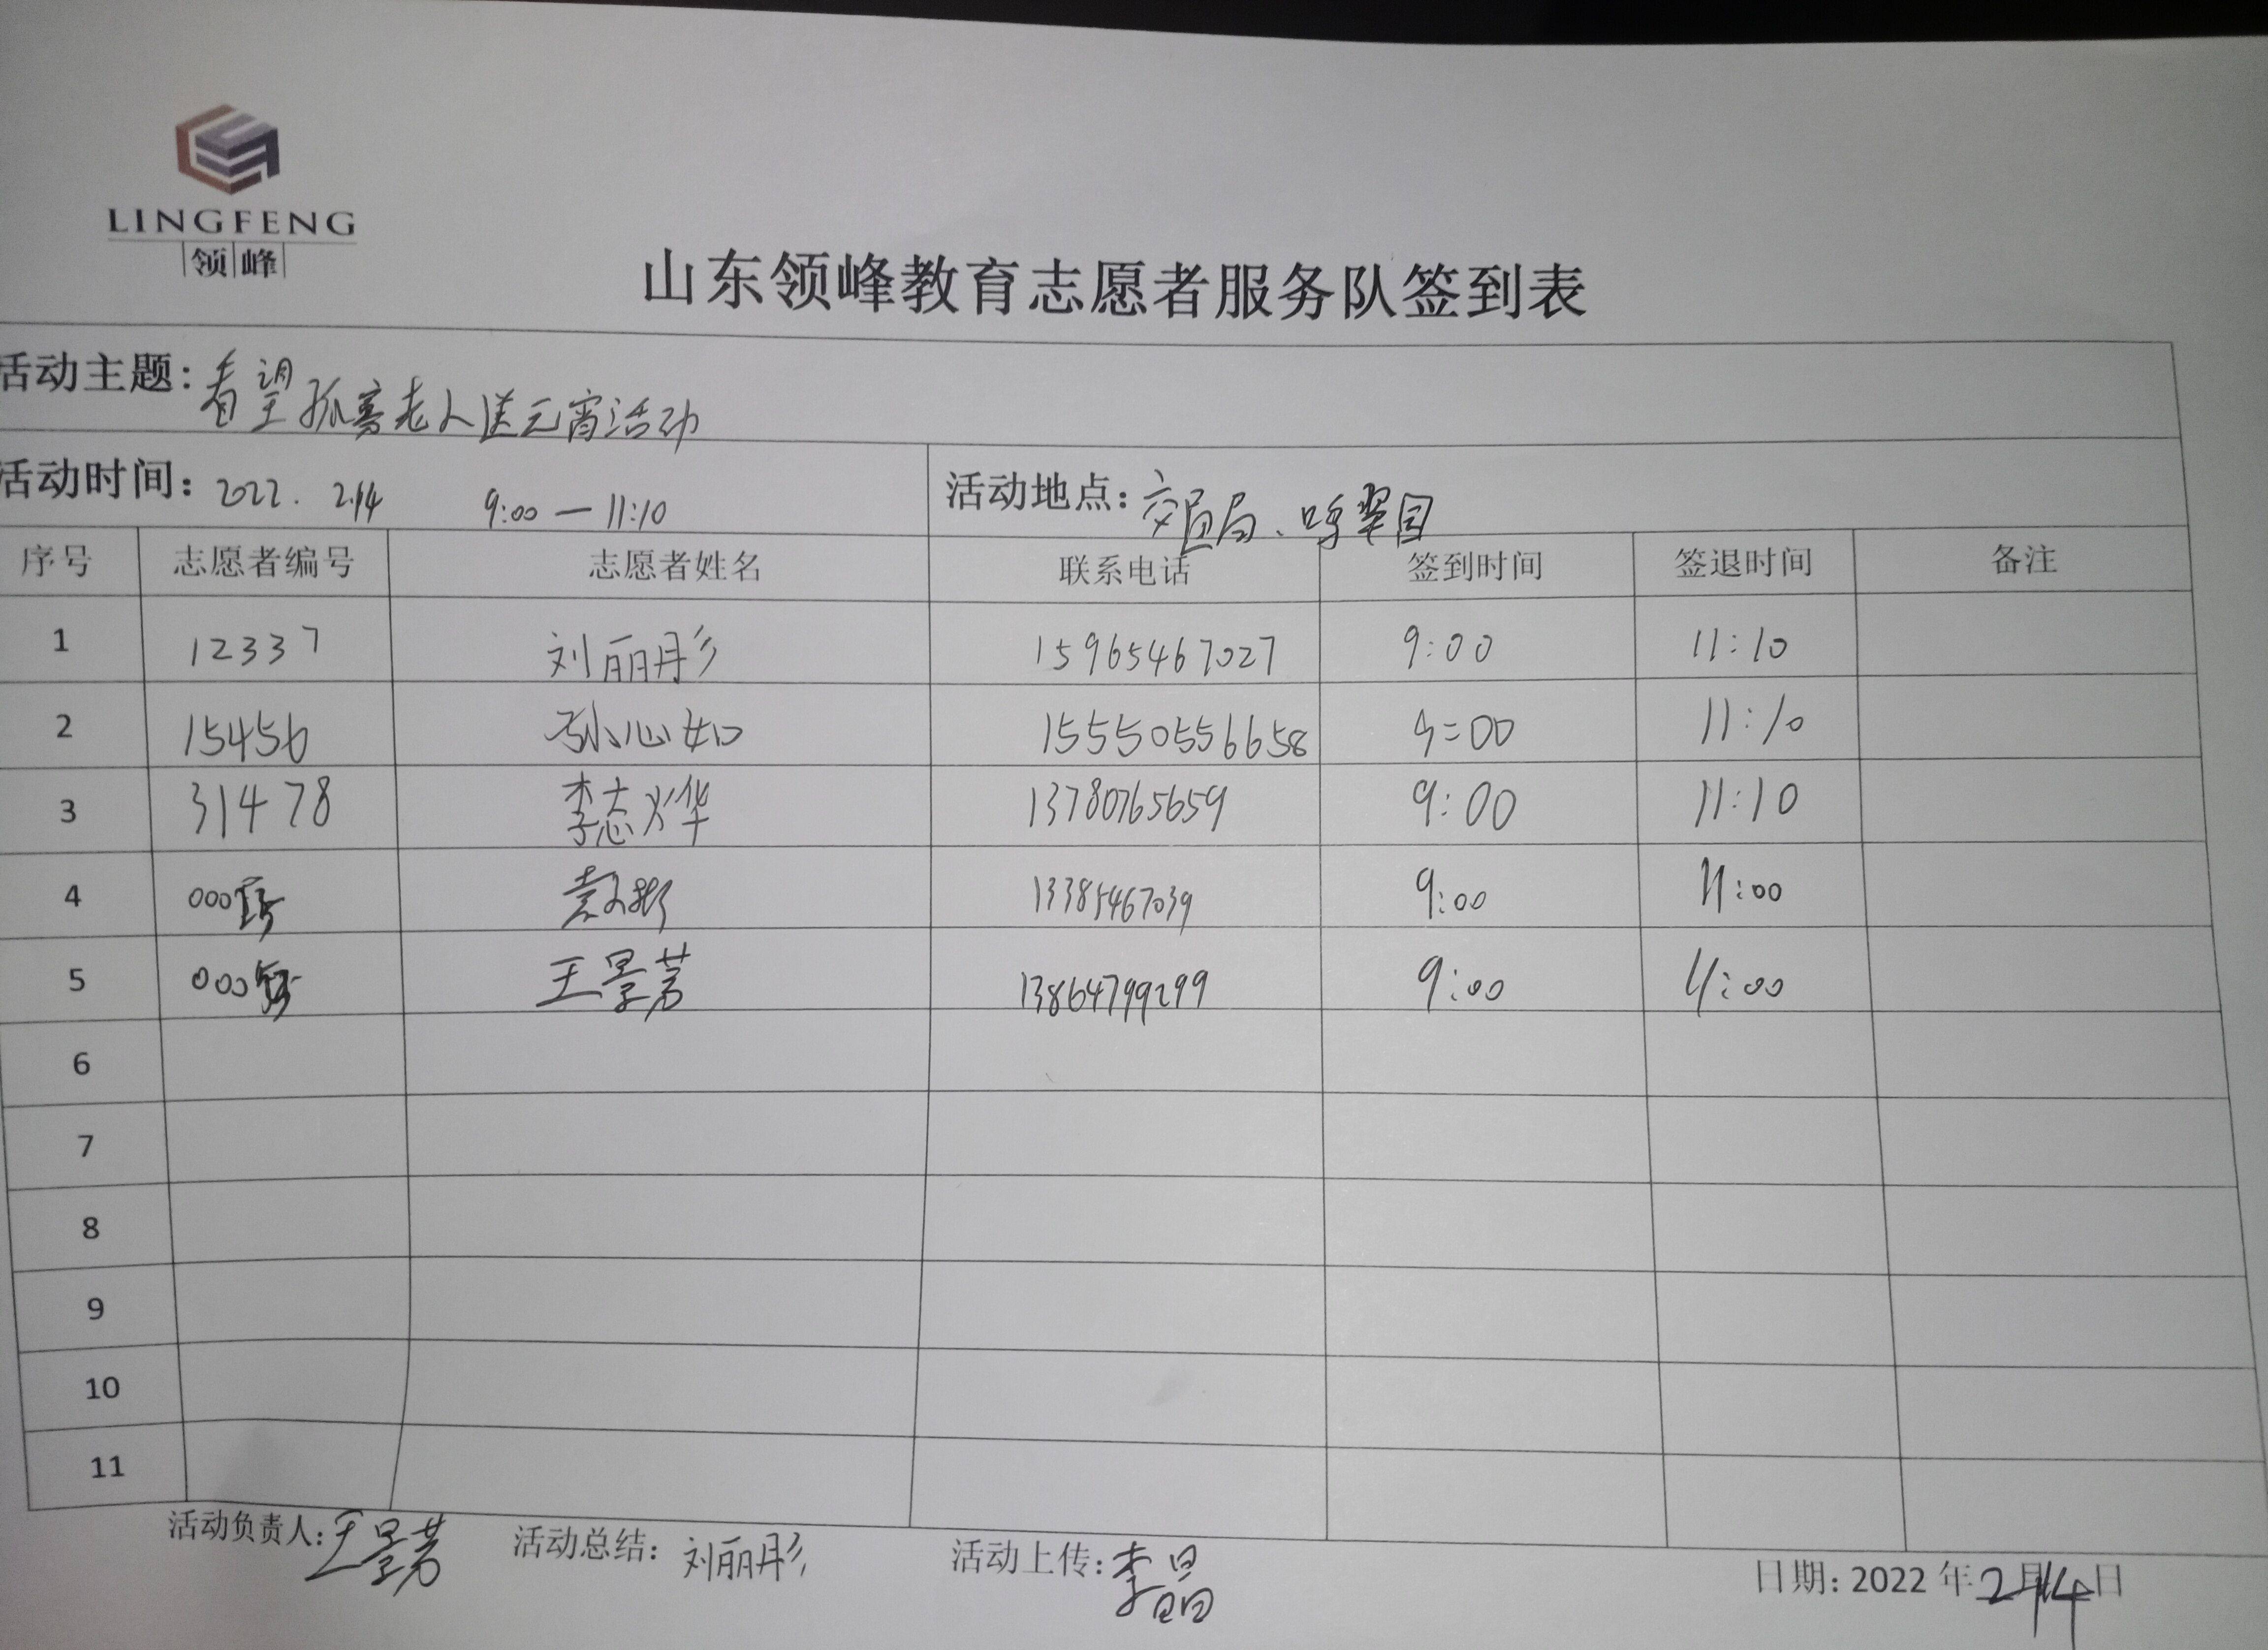 LINGFENG
领峰
山东领峰教育志愿者服务队签到表
活动主题：看望孤寡老人送元宵活动
活动时间：2022. 2.14 9:00—11:10 活动地点：交通局、翠园
序号 志愿者编号 志愿者姓名 联系电话 签到时间 签退时间 备注
1 12337 刘丽彤 15965467027 9:00 11:10
2 15456 孙心如 15550556658 9:00 11:10
3 31478 李志烨 13780765659 9:00 11:10
4 000 13385467039 9:00 11:00
5 000 王景芳 13864799299 9:00 11:00
6
7
8
9
10
11
活动负责人：王景芳 活动总结：刘丽彤 活动上传：李晶 日期：2022年2月14日